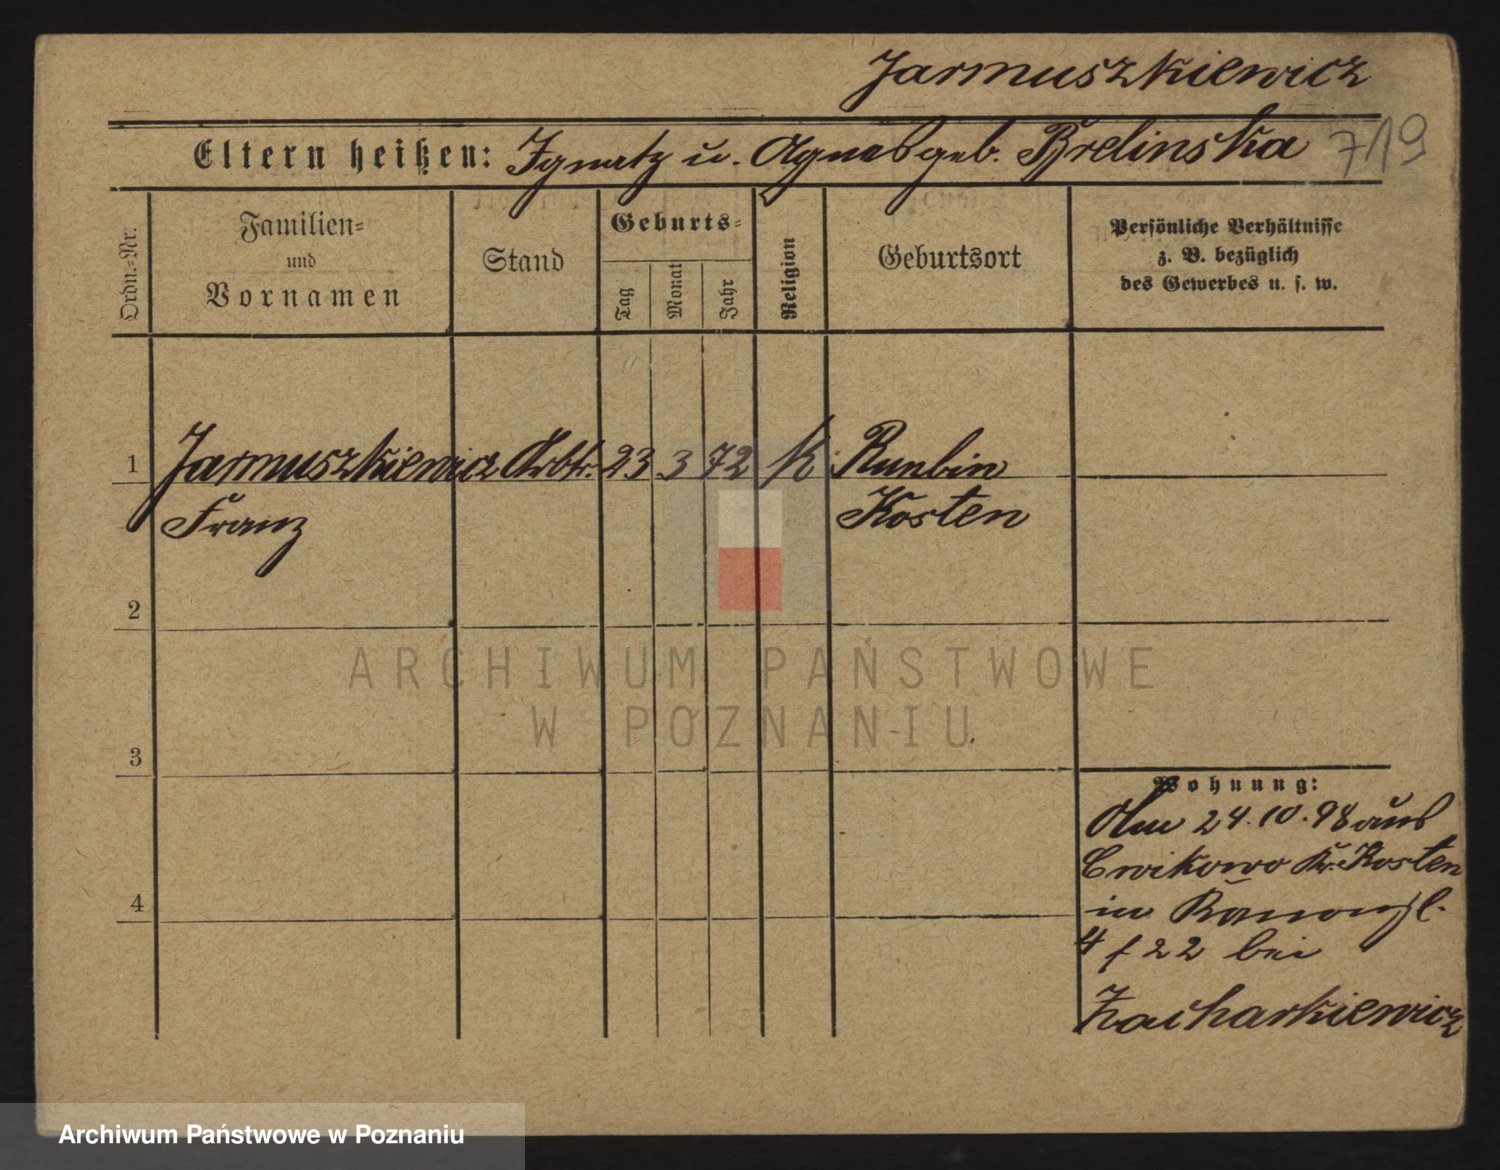 Jarmuszkiewicz
Eltern heißen: Ignatz u. Agnes geb. Brelinska 719
Ordn.-Nr.
Familien-
und
Vornamen
Stand
Geburts-
Tag
Monat
Jahr
Religion
Geburtsort
Persönliche Verhältnisse
z. B. bezüglich
des Gewerbes u. s. w.
1 Jarmuszkiewicz Arbtr. 23 3 72 K
Franz Kosten
2
ARCHIWUM PAŃSTWOWE
W POZNANIU
3
Wohnung:
Am 24.10.98 aus
Cwikowo Kr. Kosten
in
4
4 f 22 bei
Zacharkiewicz
Archiwum Państwowe w Poznaniu